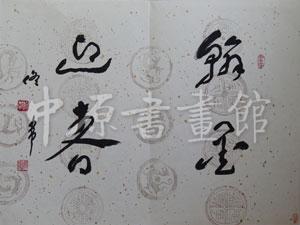 翰墨
迎春
中原書畫館